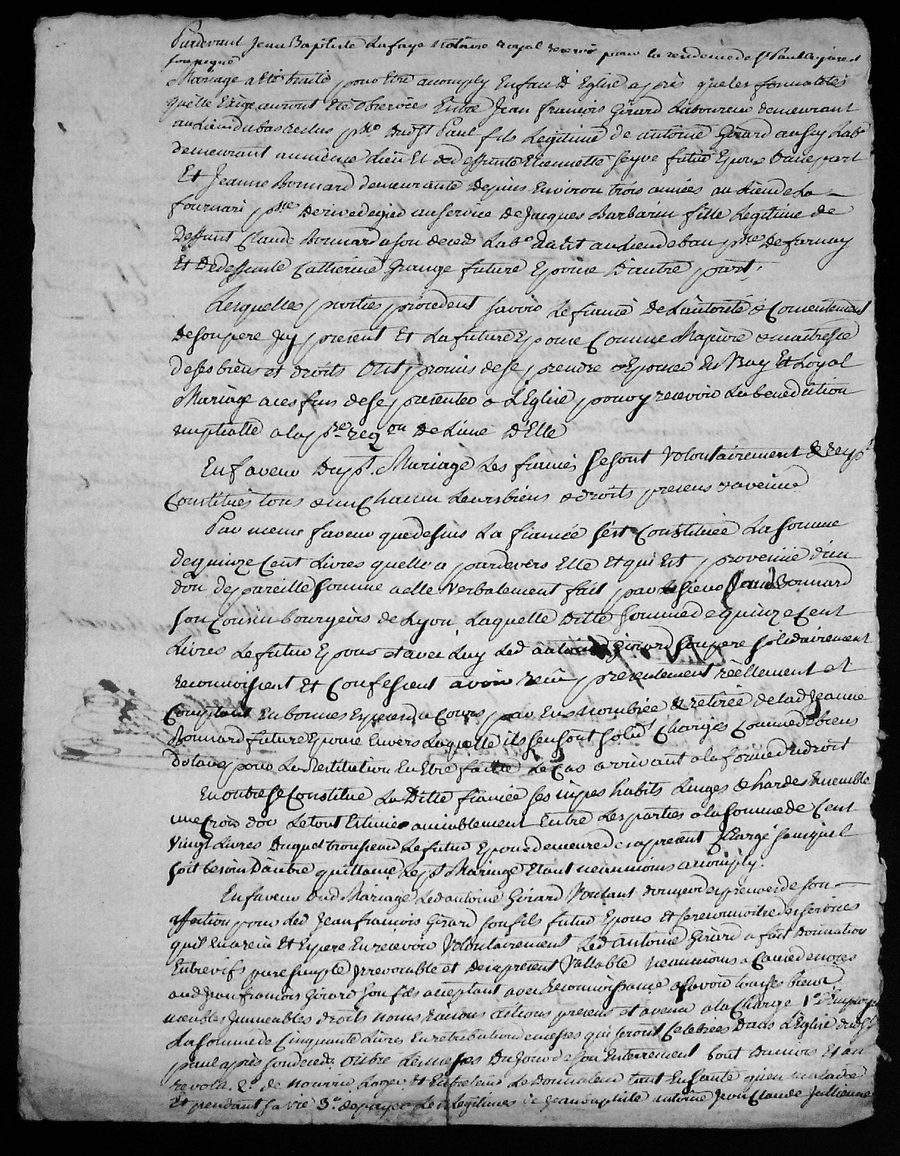 Pardevant Jean Baptiste Lafaye notaire royal reservé pour la residence de St Paul en jarest
soussigné
Mariage a eté traité pour etre acomply Enface D'Eglise apres que les formalités
quelle Exige auront Eté observées Entre Jean francois Girard Laboureur demeurant
au Lieu du bas reclus psse Dudt St Paul fils Legitime de antoine Girard aussy Labr
demeurant au meme Lieu Et de deffunte Etiennette Seyve futur Epoux D'une part
Et Jeanne Bonnard demeurante depuis Environ trois années au Lieu de La
fournari psse De rivedegied au service de Jacques Barbarin fille Legitime de
Deffunt Claude Bonnard a son deced Labr audit au Lieu de ban psse De farnay
Et De deffunte Catherine Grange future Epouse D'autre part.
Lesquelles parties procedent savoir Le fiancé de L'autorité & Consentement
de son pere Jcy present Et La future Epouse Comme Majeure & maitresse
de ses biens et droits Ont promis de se prendre & Epouser En Vray Et Loyal
Mariage a ces fins de se presenter a L'Eglise pour y recevoir La benediction
nuptialle a la pre reqon De L'une D'elle
En faveur Du pt Mariage Les fiancés se sont Volontairement & resp.t
Constitués tous & un Chacun Leurs biens & droits presens & avenir
Par meme faveur que dessus La fiancée s'est Constituée La somme
de quinze Cent Livres quelle a pardevers Elle Et qui Est provenue d'un
don de pareille somme a elle Verbalement fait par Le sieur Bonnard
son Cousin bourgeois de Lyon Laquelle Ditte somme de quinze Cent
Livres Le futur Epoux et avec Luy Led antoine Girard son pere solidairement
reconnoissent Et Confessent avoir recu presentement réellement et
Comptant En bonnes Especes du Cours par Eux nombrée & retirée de lad Jeanne
Bonnard future Epouse Envers Laquelle ils sen sont solidt Chargés Comme de biens
dotaux pour La restitution En Etre faitte Le Cas arrivant a la forme du droit
En outre se Constitue La Ditte fiancée ses nipes habits Linges & hardes Ensemble
une Croix d'or Le tout Estimé amiablement Entre Les parties a la somme de Cent
Vingt Livres Duquel trousseau Le futur Epoux demeure des apresent Chargé sans quil
soit besoin D'autre quittance Le pt Mariage Etant neanmoins acomply.
En faveur dud Mariage Led antoine Girard Voulant donner des preuves de son
affection pour led Jean francois Girard son fils futur Epoux Et se reconnoitre des services
qu'il En a recu Et Espere En recevoir Volontairement Led antoine Girard a fait Donnation
Entre vifs pure simple Jrrevocable et Des apresent Vallable neanmoins a Cause de noces
aud Jean francois Girard son fils aceptant avec reconnoissance a savoir tous ses biens
meubles Jmmeubles droits noms raisons actions presens et avenir a la Charge 1o D'Employer
La somme de Cinquante Livres En retribution de messes qui seront Celebrées Dans L'Eglise dudt St
paul après son deced Outre Les messes Du Jour de son Enterrement bout Du mois Et an
revolu 2o de nourrir Loger et Entretenir Le Donnateur tant En santé qu'en maladie
Et pendant sa vie 3o de payer Les Legitimes de Jean baptiste antoine Jean Claude Jullienne